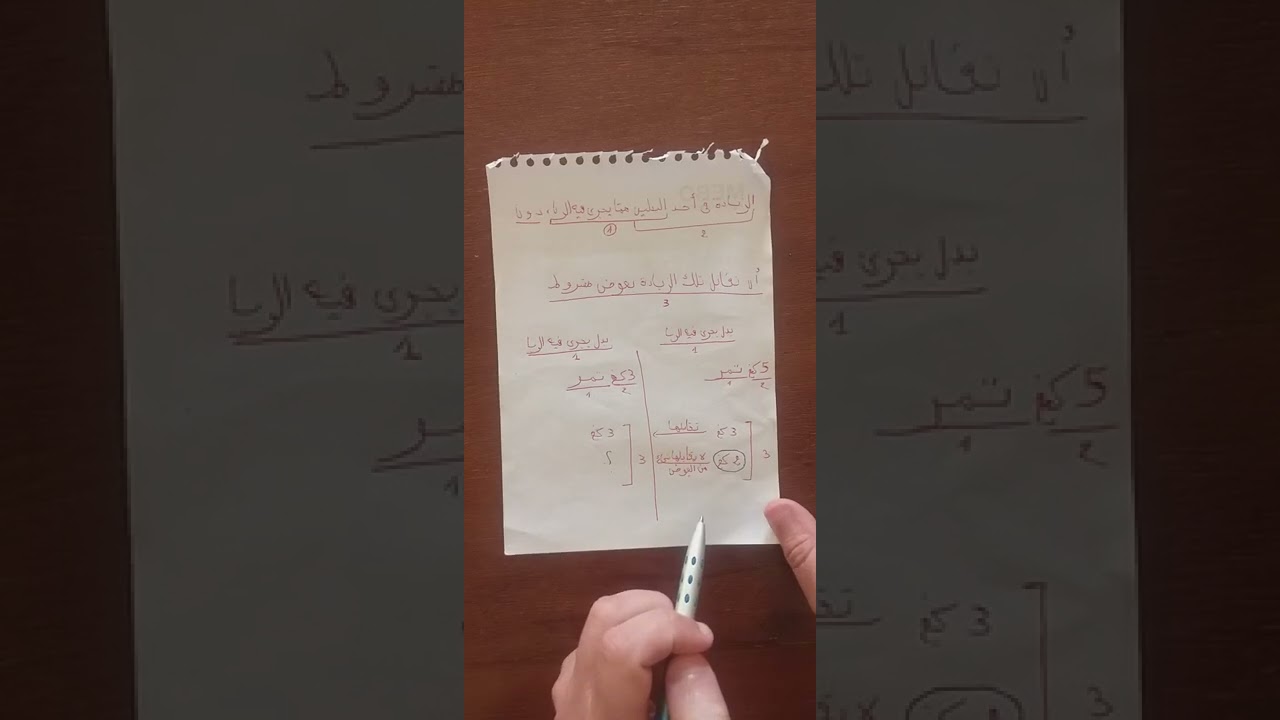 الزيادة في أحد البدلين مما يجري فيه الربا، دونما
1 2
أن تقابل تلك الزيادة بعوض مشروط
3
بدل يجري فيه الربا
1
5 كغ تمر
2 1
3 كغ تقابلها
2 كغ لا يقابلها شيء من العوض
3
بدل يجري فيه الربا
1
3 كغ تمر
2 1
3 كغ
؟
3